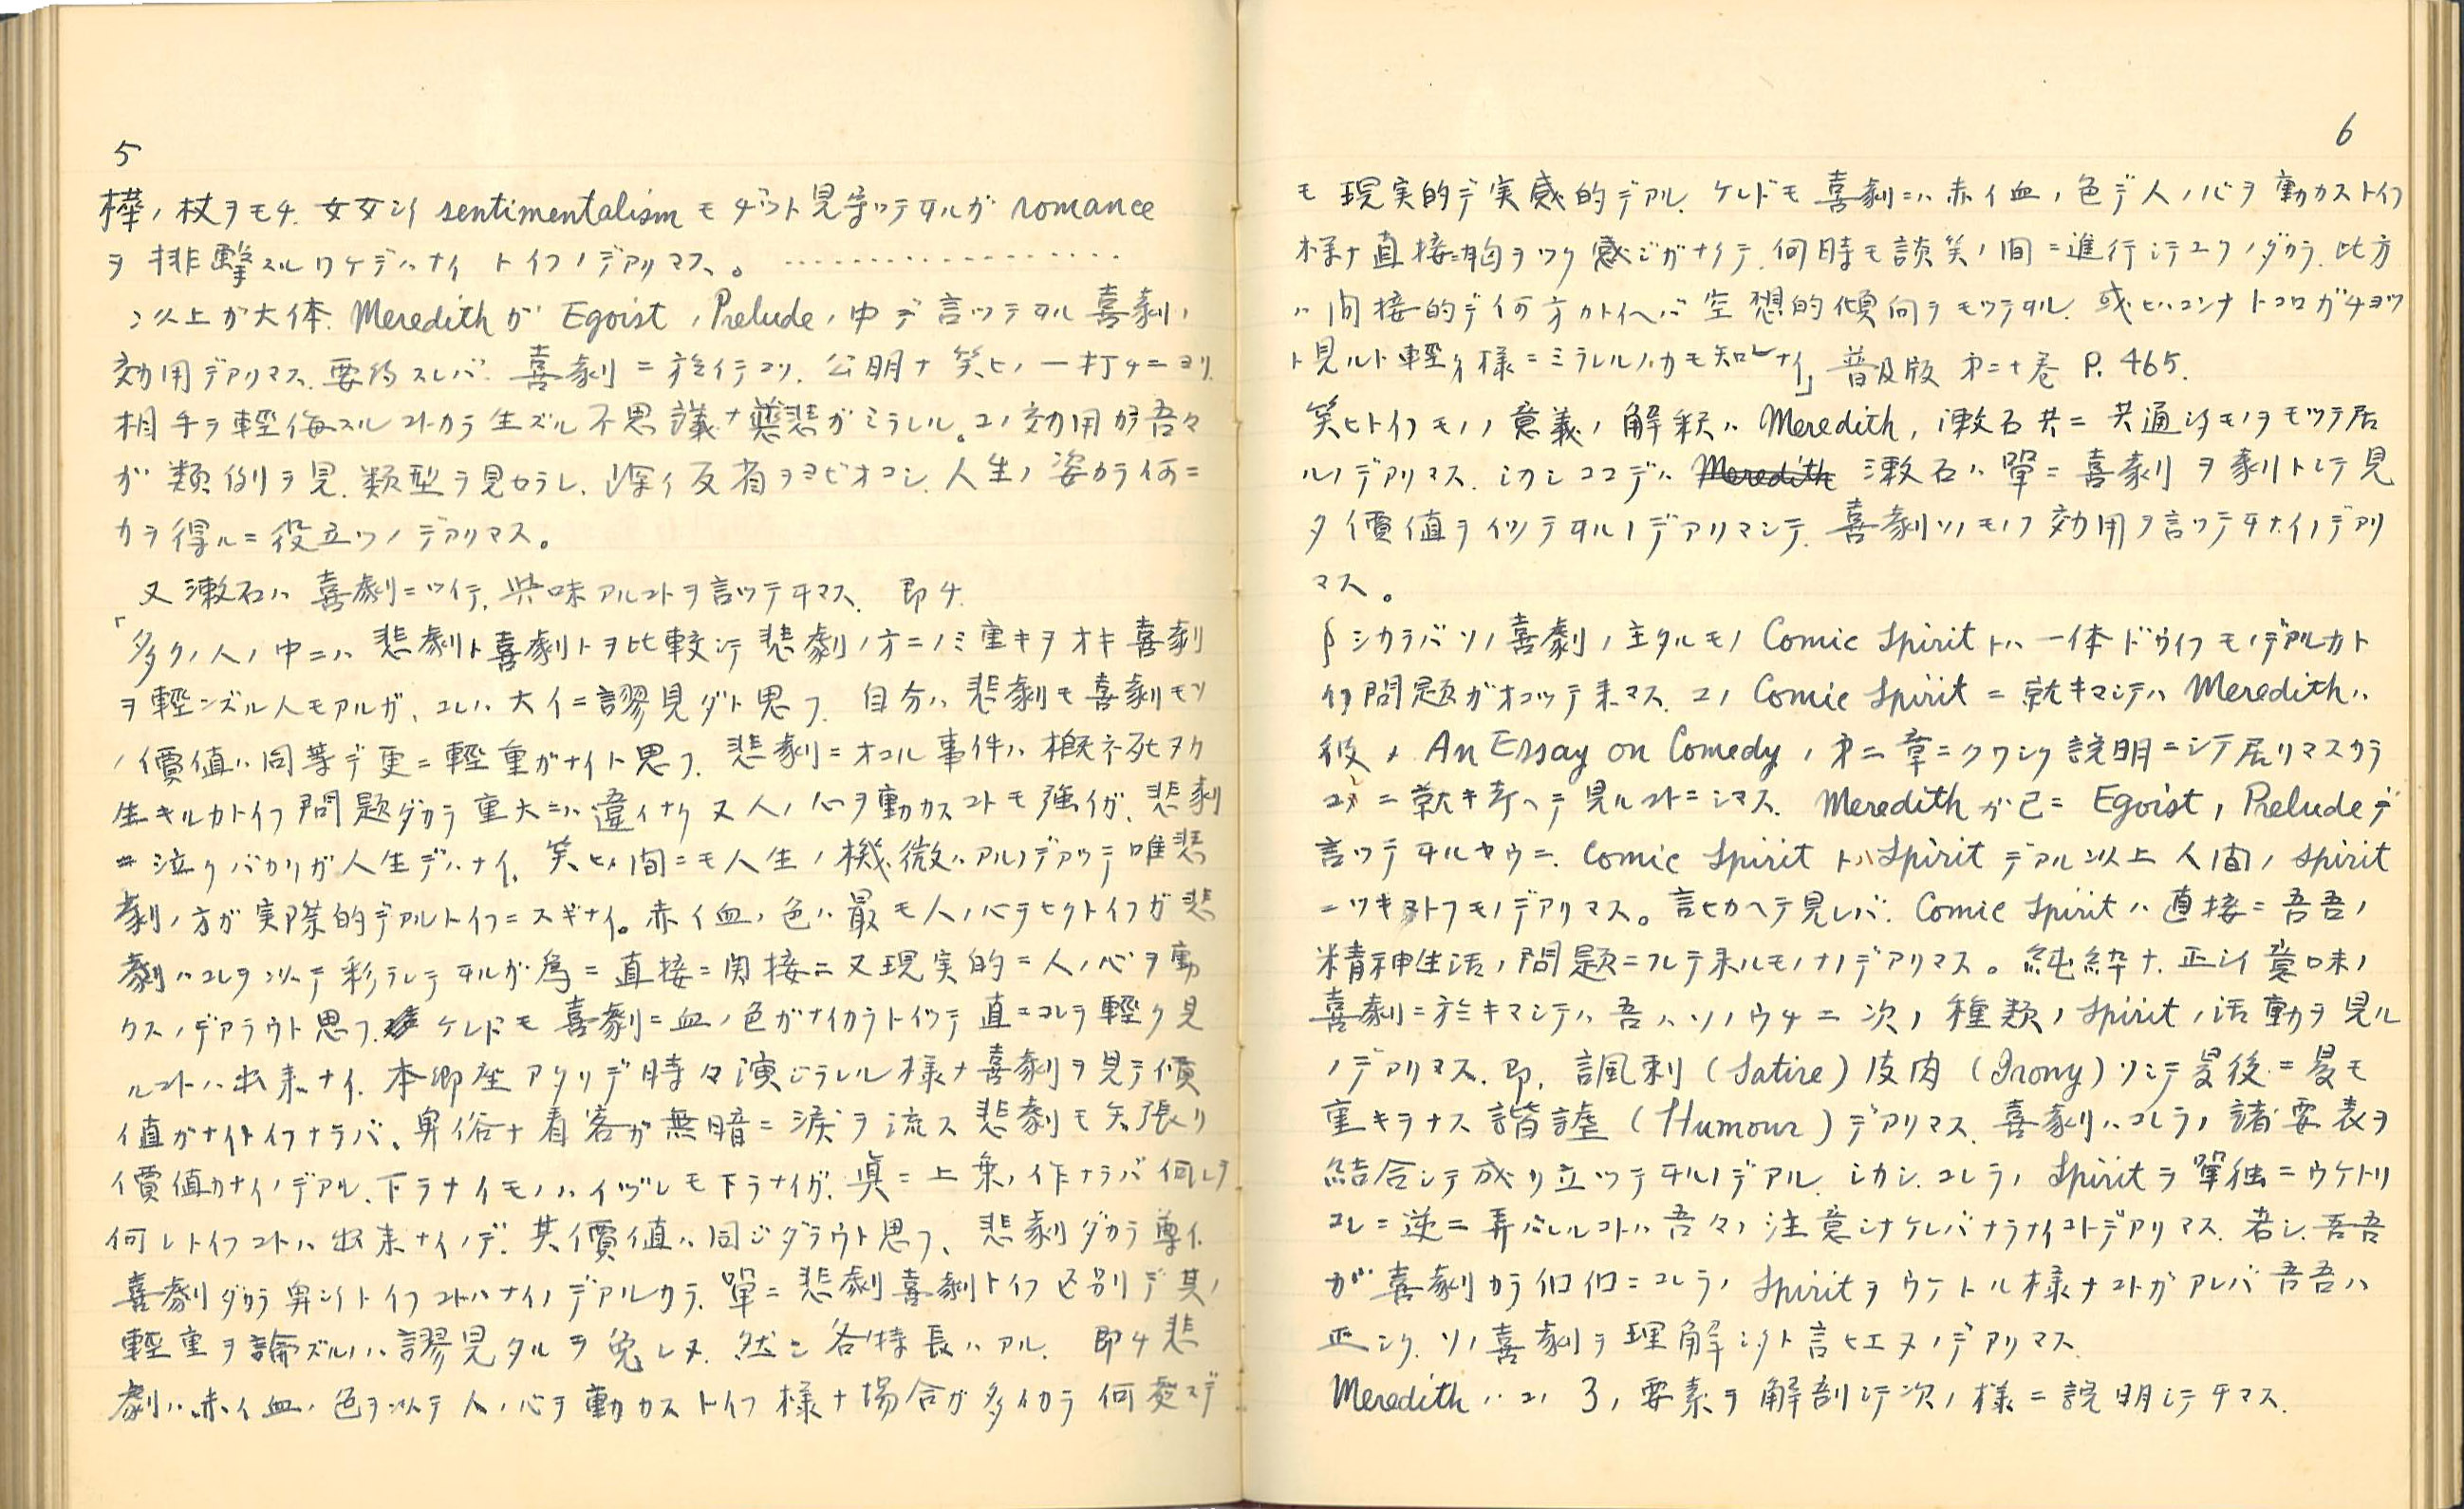 5
樺ノ杖ヲモチ、女女シイ sentimentalism モヂット見守ッテヰルガ romance
ヲ排撃スルワケデハナイ トイフノデアリマス。 ‥‥‥‥‥‥‥‥
以上ガ大体、Meredith ガ Egoist ノ Prelude ノ中デ言ッテヰル喜劇ノ
効用デアリマス、要約スレバ、喜劇ニ於イテコソ、公明ナ笑ヒノ一打チニヨリ、
相手ヲ輕侮スルコトカラ生ズル不思議ナ慈悲ガミラレル。コノ効用ガ吾々
ガ類例ヲ見、類型ヲ見セラレ、深イ反省ヲヨビオコシ、人生ノ姿カラ何ニ
カヲ得ルニ役立ツノデアリマス。
又漱石ハ喜劇ニツイテ、興味アルコトヲ言ッテヰマス、即チ、
「多クノ人ノ中ニハ悲劇ト喜劇トヲ比較シテ悲劇ノ方ニノミ重キヲオキ喜劇
ヲ輕ンズル人モアルガ、コレハ大イニ謬見ダト思フ、自分ハ悲劇モ喜劇モソ
ノ價値ハ同等デ更ニ輕重ガナイト思フ、悲劇ニオコル事件ハ概ネ死ヌカ
生キルカトイフ問題ダカラ重大ニハ違イナク又人ノ心ヲ動カスコトモ強イガ、悲劇
泣クバカリガ人生デハナイ、笑ヒノ間ニモ人生ノ機微ハアルノデアッテ唯悲
劇ノ方ガ実際的デアルトイフニスギナイ。赤イ血ノ色ハ最モ人ノ心ヲヒクトイフガ悲
劇ハコレヲ以テ彩ラレテヰルガ為ニ直接ニ間接ニ又現実的ニ人ノ心ヲ動
カスノデアラウト思フ、ケレドモ喜劇ニ血ノ色ガナイカラトイッテ直ニコレヲ輕ク見
ルコトハ出来ナイ、本郷座アタリデ時々演ジラレル様ナ喜劇ヲ見テ價
値ガナイトイフナラバ、卑俗ナ看客ガ無暗ニ涙ヲ流ス悲劇モ矢張リ
價値ガナイノデアル、下ラナイモノハイヅレモ下ラナイガ、眞ニ上乗ノ作ナラバ何レヲ
何レトイフコトハ出来ナイノデ、其價値ハ同ジダラウト思フ、悲劇ダカラ尊イ、
喜劇ダカラ卑シイトイフコトハナイノデアルカラ、單ニ悲劇喜劇トイフ区別デ其ノ
輕重ヲ論ズルノハ謬見タルヲ免レヌ、然シ各特長ハアル、即チ悲
劇ハ赤イ血ノ色ヲ以テ人ノ心ヲ動カストイフ様ナ場合ガ多イカラ何処マデ
6
モ現実的デ実感的デアル、ケレドモ喜劇ニハ赤イ血ノ色デ人ノ心ヲ動カストイフ
様ナ直接ニ胸ヲツク感ジガナイデ、何時モ談笑ノ間ニ進行シテユクノダカラ、此方
ハ間接的デ何方カトイヘバ空想的傾向ヲモッテヰル、或ヒハコンナトコロガチヨッ
ト見ルト輕イ様ニミラレルノカモ知レナイ」普及版 第二十巻 P. 465.
笑ヒトイフモノノ意義ノ解釈ハ Meredith, 漱石共ニ共通シタモノヲモッテ居
ルノデアリマス、シカシココデハ ~~Meredith~~ 漱石ハ單ニ喜劇ヲ劇トシテ見
タ價値ヲイッテヰルノデアリマシテ、喜劇ソノモノノ効用ヲ言ッテヰナイノデアリ
マス。
∮シカラバソノ喜劇ノ主タルモノ Comic Spirit トハ一体ドウイフモノデアルカト
イフ問題ガオコッテ来マス、コノ Comic Spirit ニ就キマシテハ Meredith ハ
彼ノ An Essay on Comedy ノ第二章ニクワシク説明ニシテ居リマスカラ
コレニ就キ考ヘテ見ルコトニシマス、Meredith ガ已ニ Egoist, Prelude デ
言ッテヰルヤウニ、Comic Spirit トハ Spirit デアル以上人間ノ spirit
ニツキマトフモノデアリマス。言ヒカヘテ見レバ、Comic Spirit ハ直接ニ吾吾ノ
精神生活ノ問題ニフレテ来ルモノナノデアリマス。純粋ナ、正シイ意味ノ
喜劇ニ於キマシテハ吾々ハソノウチニ次ノ種類ノ Spirit ノ活動ヲ見ル
ノデアリマス、即、諷刺 (Satire) 皮肉 (Irony) ソシテ最後ニ最モ
重キヲナス諧謔 (Humour) デアリマス、喜劇ハコレラノ諸要素ヲ
結合シテ成リ立ッテヰルノデアル、シカシ、コレラノ Spirit ヲ單独ニウケトリ
コレニ逆ニ弄バレルコトハ吾々ノ注意シナケレバナラナイコトデアリマス、若シ、吾吾
ガ喜劇カラ個個ニコレラノ Spirit ヲウケトル様ナコトガアレバ吾吾ハ
正シク、ソノ喜劇ヲ理解シタト言ヒエヌノデアリマス、
Meredith ハコノ 3ノ要素ヲ解剖シテ次ノ様ニ説明シテヰマス、